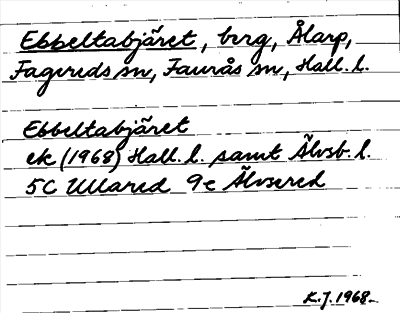 Ebbeltabjäret, berg, Ålarp,
Fagereds sn, Faurås sn, Hall. l.
Ebbeltabjäret
ek (1968) Hall. l. samt Älvsb. l.
5C Ullared 9e Älvsered
K.J. 1968.